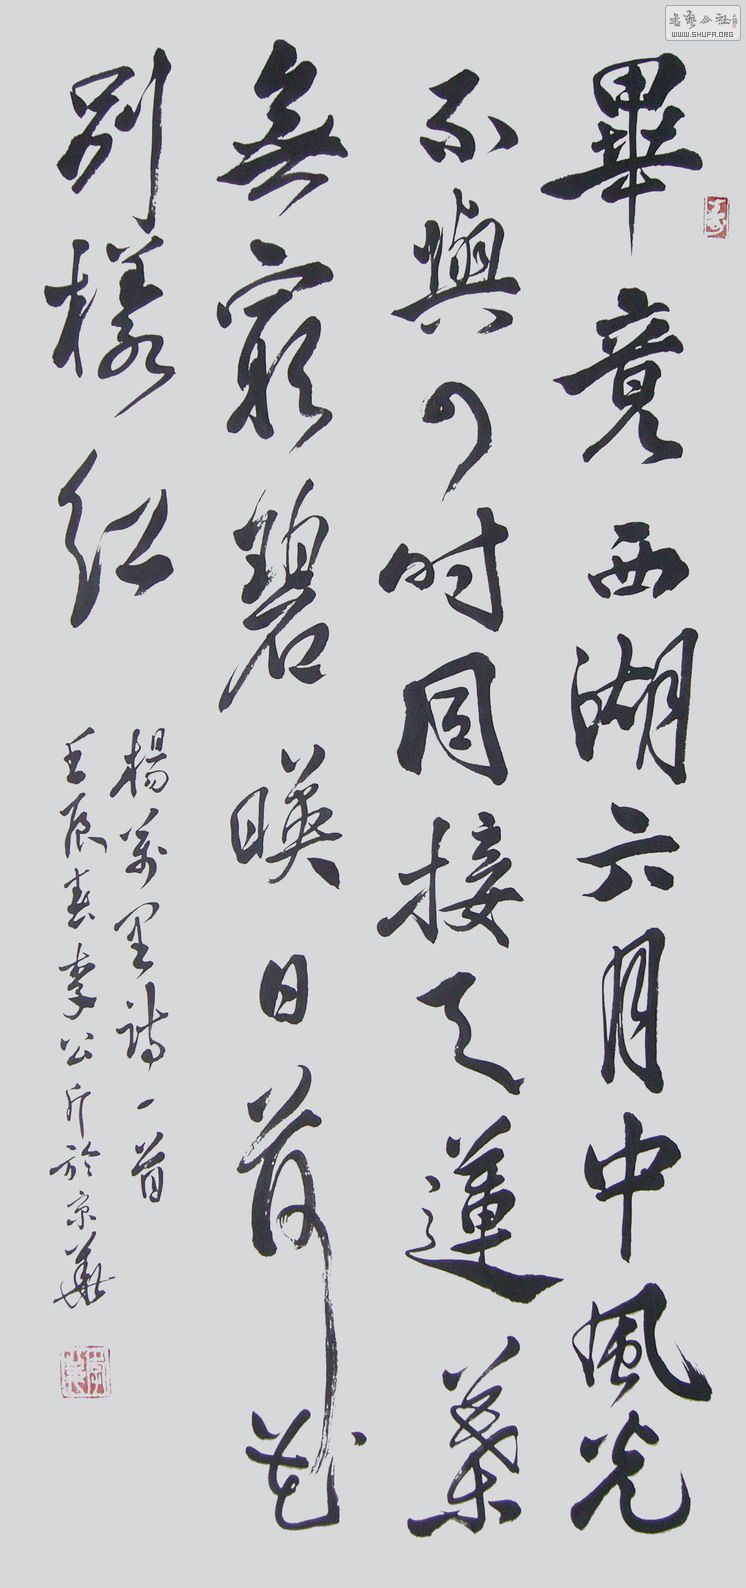 畢竟西湖六月中風光
不與四时同接天蓮葉
無窮碧暎日荷花
別樣紅
楊萬里詩一首
壬辰春李公於京華
書藝公社
WWW.SHUFA.ORG